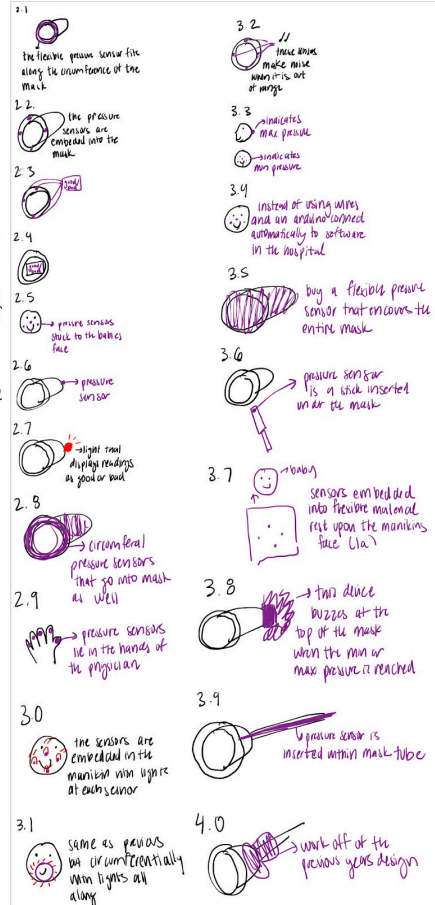 2.1
the flexible pressure sensor fits
along the circumference of the
mask
2.2.
the pressure
sensors are
embeded into the
mask
2.3
good/
bad
2.4
good/
bad
2.5
pressure sensors
stuck to the babies
face
2.6
pressure
sensor
2.7
light that
displays readings
as good or bad
2.8
circumferal
pressure sensors
that go into mask
as well
2.9
pressure sensors
lie in the hands of
the physician
3.0
the sensors are
embedded in the
manikin with lights
at each sensor
3.1
same as previous
but circumferentially
with lights all
along
3.2
these wires
make noise
when it is out
of range
3.3
indicates
max pressure
indicates
min pressure
3.4
instead of using wires
and an arduino connect
automatically to software
in the hospital
3.5
buy a flexible pressure
sensor that encovers the
entire mask
3.6
pressure sensor
is a stick inserted
under the mask
3.7
baby
sensors embedded
into flexible material
rest upon the manikins
face (1a)
3.8
this device
buzzes at the
top of the mask
when the min or
max pressure is reached
3.9
pressure sensor is
inserted within mask tube
4.0
work off of the
previous years design